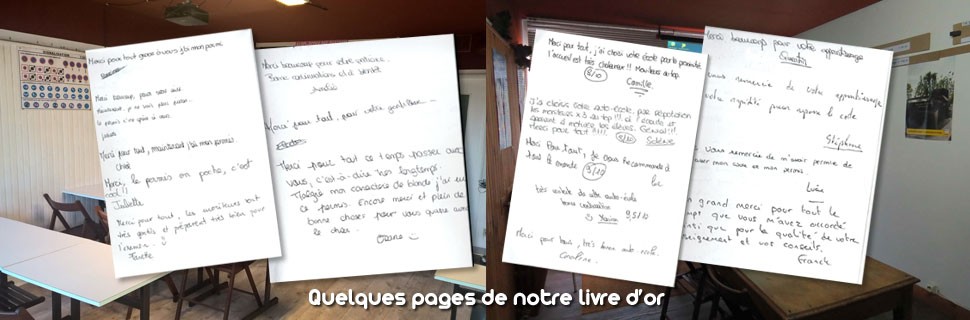 Merci pour tout grace à vous j'ai mon permis
Merci beaucoup, pour votre aide
le permis c'est grâce à vous
Merci pour tout, maintenant j'ai mon permis
Merci, le permis en poche, c'est
cool!!
Juliette
Merci pour tout, les moniteurs sont
très gentils et préparent très bien pour
l'examen. :)
Merci beaucoup pour votre patience.
Bonne continuation et à bientôt
Merci pour tout, pour votre gentillesse...
Merci pour tout ce temps passer avec
vous, c'est-à-dire très longtemps.
Malgrés mon caractère de blonde j'ai eu
ce permis. Encore merci et plein de
bonne choses pour vous quatre avec
le chien.
Merci pour tout, j'ai choisi votre école par la proximité
l'accueil est très chaleureux!! Moniteurs au top
8/10
Camille
J'ai choisis votre auto-école par réputation
les moniteurs x3 au top!!! à l'écoute et
savent à motiver les élèves. Génial!!!
Merci pour tout!!!!
Solène
Merci Pour Tout, Je vous Recommande à
tout le monde 9/10
Luc
très satisfaite de votre auto-école
bonne continuation
:) Marine 9.5/10
Merci pour tout, très bonne auto-école.
Caroline
Merci beaucoup pour votre apprentissage
vous remercie de votre apprentissage
votre rapidité pour repasser le code
Stéphane
vous remercie de m'avoir permis de
passer mon code et mon permis.
un grand merci pour tout le
temps que vous m'avez accordé
ainsi que pour la qualité de votre
enseignement et vos conseils.
Franck
Quelques pages de notre livre d'or